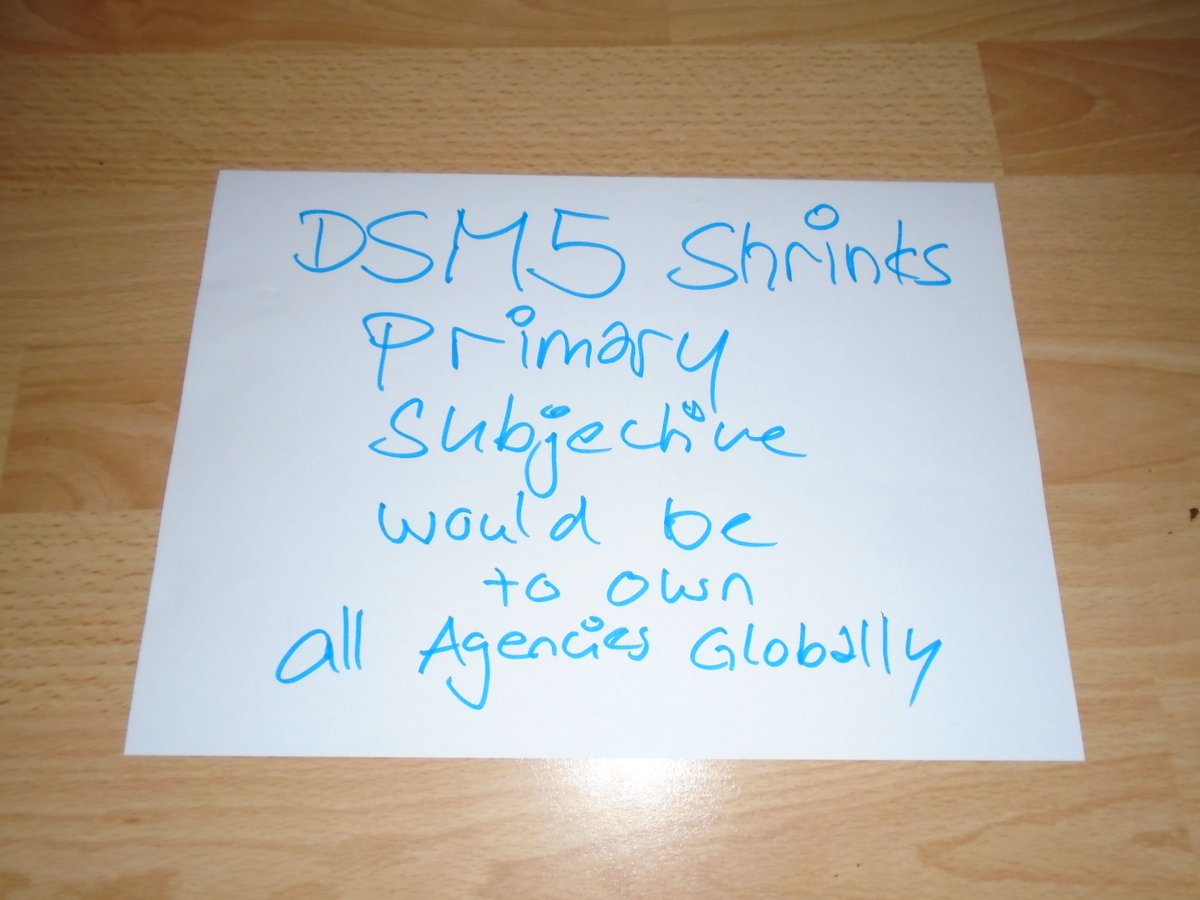 DSM5 Shrinks
Primary
Subjective
would be
to own
all Agencies Globally